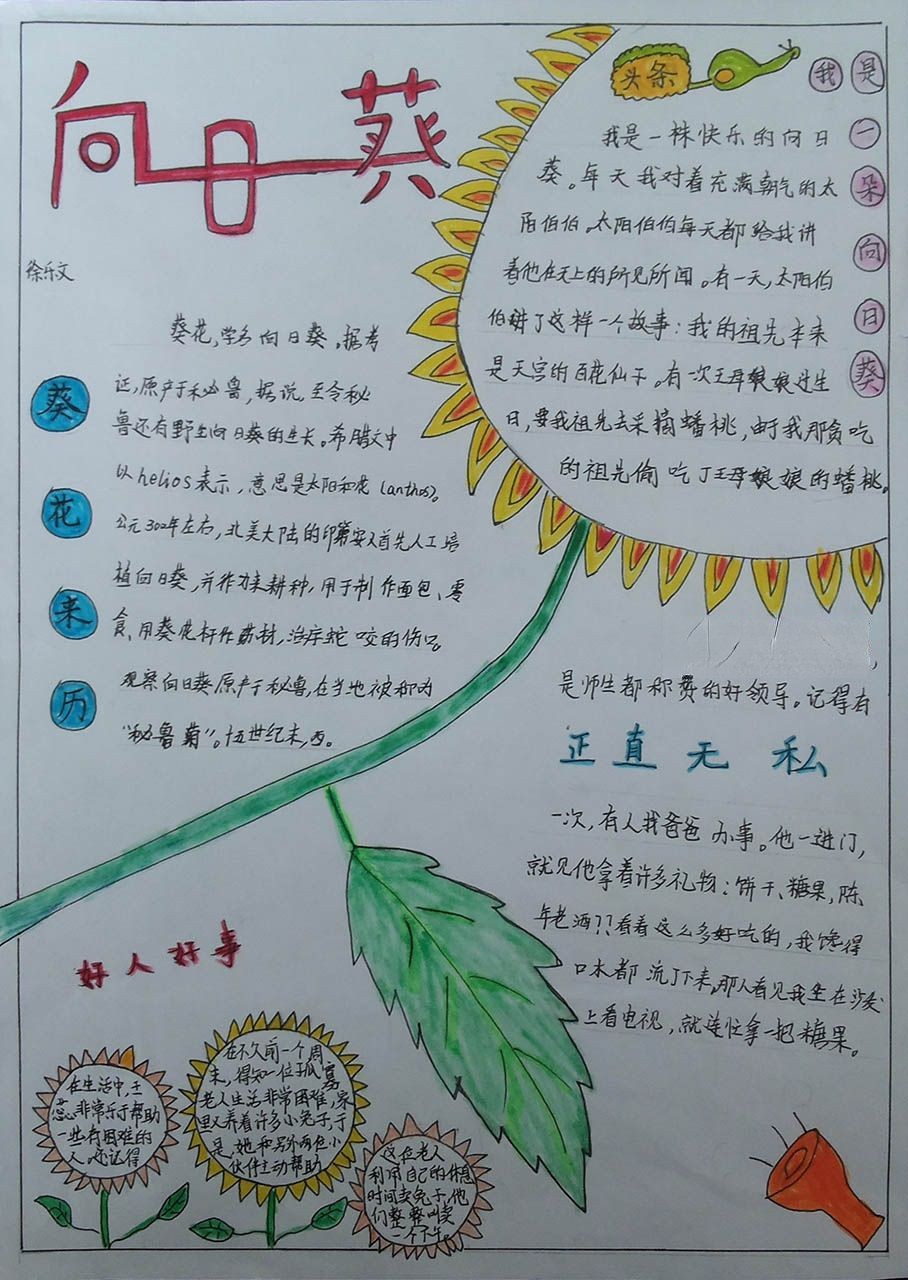 向日葵
徐乐文
葵花来历
葵花,学名向日葵。据考
证,原产于秘鲁,据说,至令秘
鲁还有野生向日葵的生长。希腊文中
以helios表示,意思是太阳和花(anthos)。
公元300年左右,北美大陆的印第安人首先人工培
植向日葵,并作力来耕种,用于制作面包、零
食、用葵花杆作药材,治疗蛇咬的伤口。
观察向日葵原产于秘鲁,在当地被称为
“秘鲁菊”。十五世纪末,西。
头条
我是一朵向日葵
我是一株快乐的向日
葵。每天我对着充满朝气的太
阳伯伯。太阳伯伯每天都给我讲
着他在天上的所见所闻。有一天,太阳伯
伯讲了这样一个故事:我的祖先本来
是天宫的百花仙子。有一次王母娘娘过生
日,要我祖先去采摘蟠桃,由于我那贪吃
的祖先偷吃了王母娘娘的蟠桃。
是师生都称赞的好领导。记得有
正直无私
一次,有人找爸爸办事。他一进门,
就见他拿着许多礼物:饼干、糖果,陈
年老酒??看着这么多好吃的,我馋得
口水都流了下来,那人看见我坐在沙发
上看电视,就连忙拿一把糖果。
好人好事
在生活中,王
蕊非常乐于帮助
一些有困难的
人。还记得
在不久前一个周
末,得知一位孤寡
老人生活非常困难,家
里又养着许多小兔子,于
是,她和另外两位小
伙伴主动帮助
这位老人
利用自己的休息
时间卖兔子,他
们整整叫卖
一个下午。